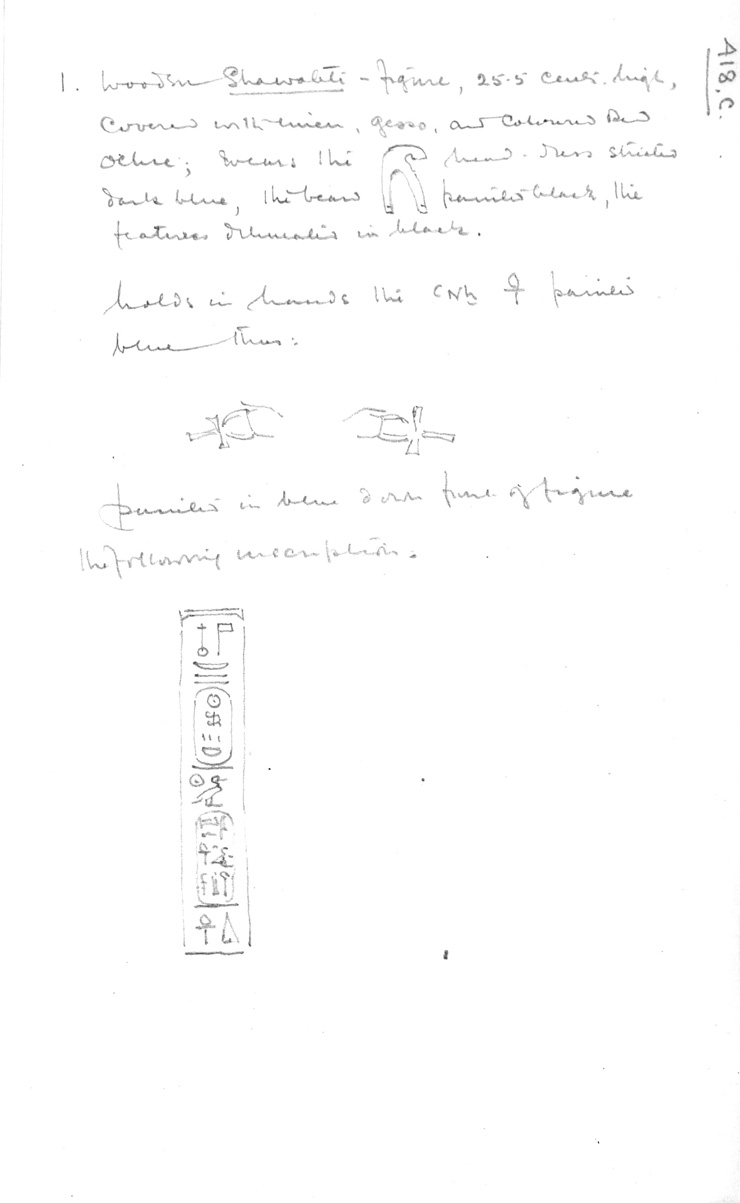 A18, C.
1. Wooden Shawabti - figure, 25.5 cents. high,
Covered with linen, gesso, and coloured Red
Ochre; wears the head-dress striated
dark blue, the beard painted black, the
features delineated in black.
holds in hands the cnḫ ☥ painted
blue thus:
painted in blue down front of figure
the following inscription.